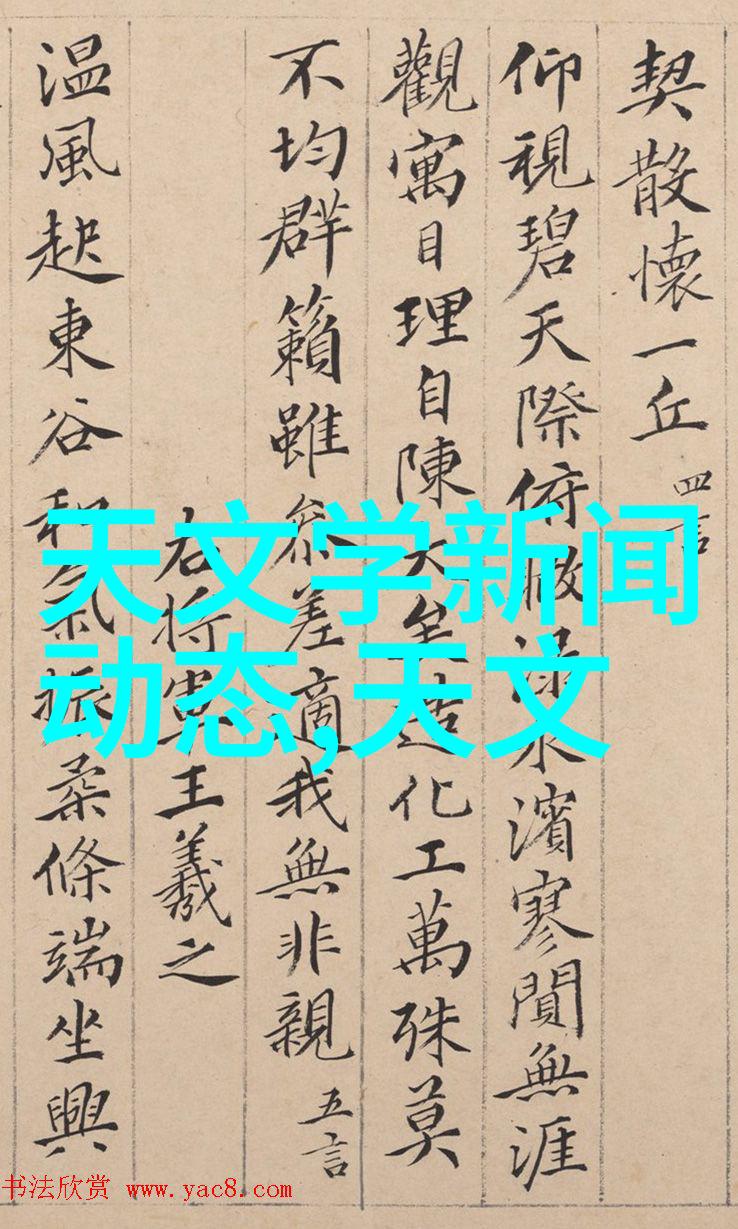 契散懷一丘 四言
仰視碧天際俯
水濱寥閴無涯
觀寓目理自陳大矣造化工萬殊莫
不均群籟雖參差適我無非親 五言
右將軍王羲之
温風起東谷和氣振柔條端坐興
天文学新闻
动态,天文
书法欣赏 www.yac8.com